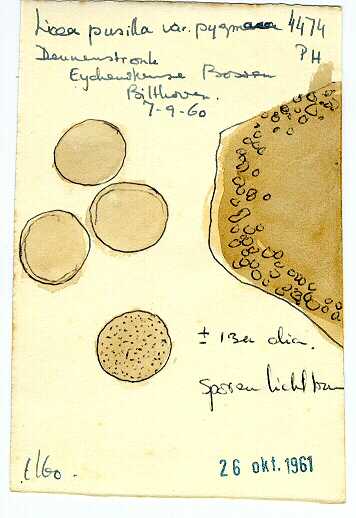 Licea pusilla var. pygmaea 4474
Dennenstronk PH
Bossen
Bilthoven.
7-9-60
± 13u dia.
sporen licht bruin
26 okt. 1961